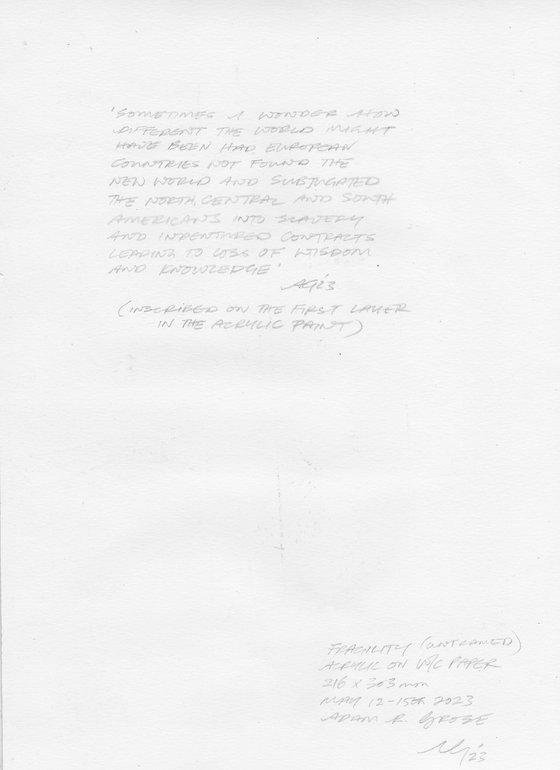 'SOMETIMES I WONDER HOW
DIFFERENT THE WORLD MIGHT
HAVE BEEN HAD EUROPEAN
COUNTRIES NOT FOUND THE
NEW WORLD AND SUBJUGATED
THE NORTH, CENTRAL AND SOUTH
AMERICANS INTO SLAVERY
AND INDENTURED CONTRACTS
LEADING TO LOSS OF WISDOM
AND KNOWLEDGE'
AG'23
(INSCRIBED ON THE FIRST LAYER
IN THE ACRYLIC PAINT)
FRAGILITY (UNFRAMED)
ACRYLIC ON W/C PAPER
216 x 303mm
MAY 12-15TH 2023
ADAM R. GROSE
AG'23